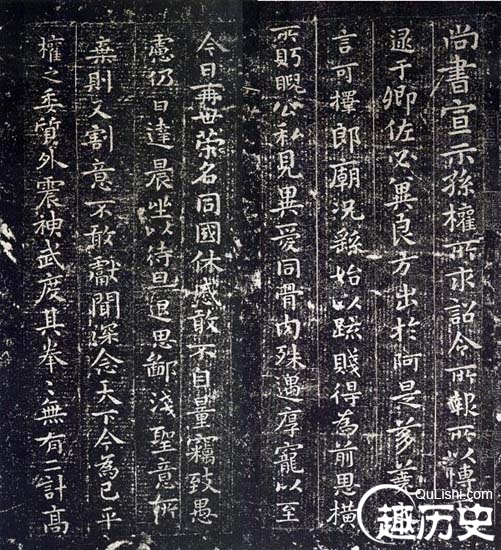 尚書宣示孫權所求詔令所報所以博
逮于卿佐必冀良方出於阿是芻蕘
言可擇郎廟況繇始以疏賤得為前恩橫
所眄睨公私見異愛同骨肉殊遇厚寵以至
今日再世榮名同國休慼敢不自量竊致愚
慮仍日達晨坐以待旦退思鄙淺聖意所
棄則又割意不敢獻聞深念天下今為已平
權之委質外震神武度其拳〻無有二計高
QuLiShi.com
趣历史